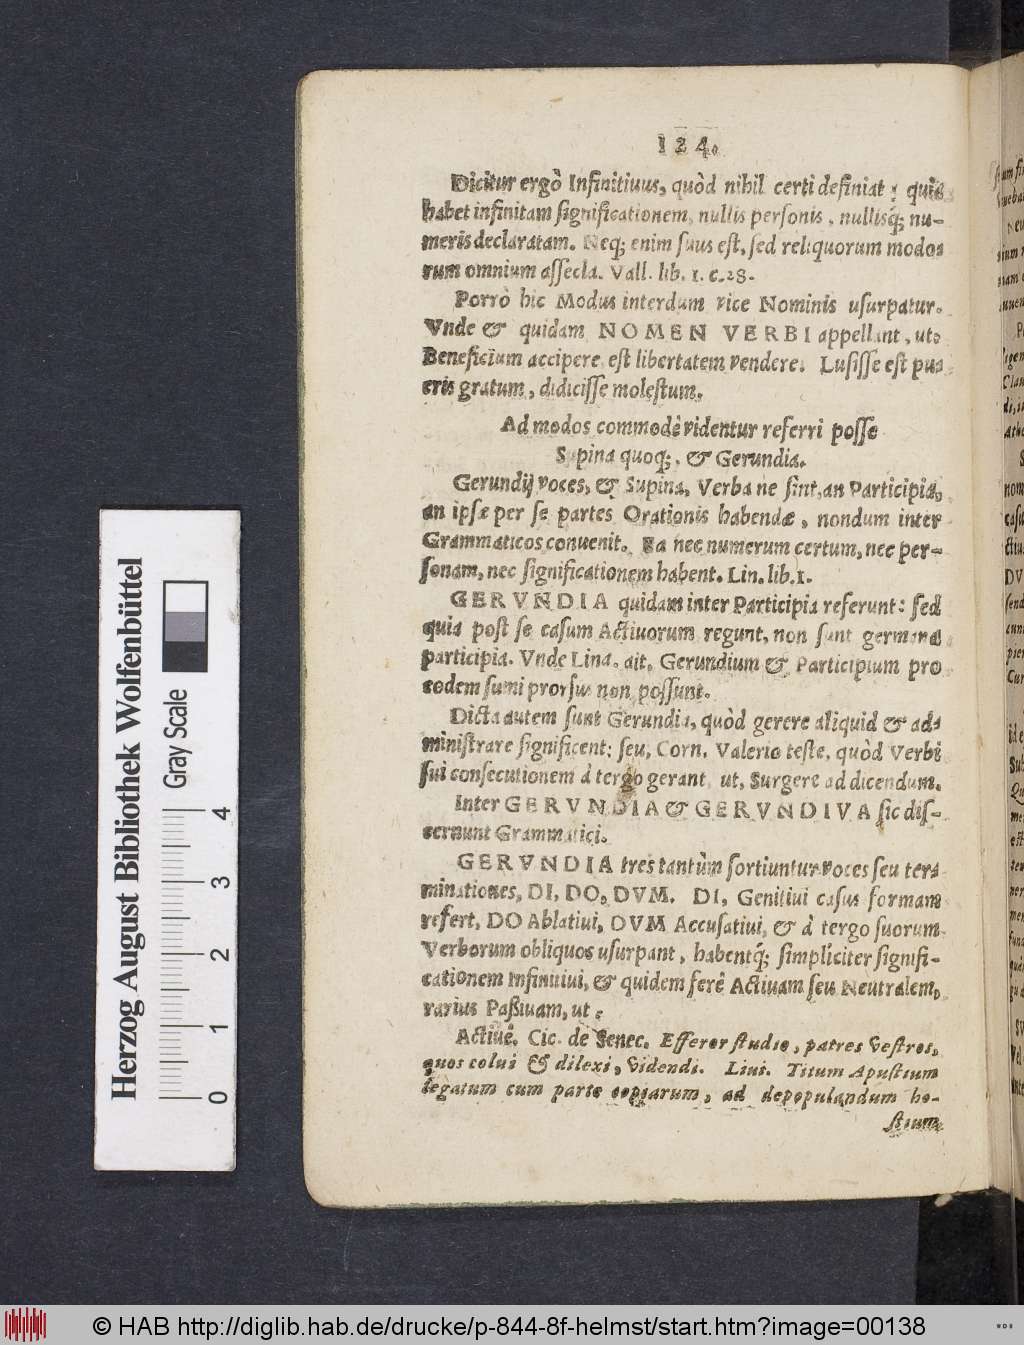 124.
Dicitur ergò Infinitiuus, quòd nihil certi definiat; quia
habet infinitam significationem, nullis personis, nullisq́; nu-
meris declaratam. Neq; enim suus est, sed reliquorum modo-
rum omnium assecla. Vall. lib. 1. c. 28.
Porrò hic Modus interdum vice Nominis usurpatur.
Vnde & quidam NOMEN VERBI appellant, ut:
Beneficium accipere, est libertatem vendere. Lusisse est pu-
eris gratum, didicisse molestum.
Ad modos commodè videntur referri posse
Supina quoq;, & Gerundia.
Gerundij voces, & Supina, Verba ne sint, an Participia,
an ipsæ per se partes Orationis habendæ, nondum inter
Grammaticos conuenit. Ea nec numerum certum, nec per-
sonam, nec significationem habent. Lin. lib. 1.
GERVNDIA quidam inter Participia referunt: sed
quia post se casum Actiuorum regunt, non sunt germana
participia. Vnde Lina. ait, Gerundium & Participium pro
eodem sumi prorsus non possunt.
Dicta autem sunt Gerundia, quòd gerere aliquid & ad-
ministrare significent: seu, Corn. Valerio teste, quòd Verbi
sui consecutionem à tergo gerant, ut, Surgere ad dicendum.
Inter GERVNDIA & GERVNDIVA sic dis-
cernunt Grammatici.
GERVNDIA tres tantùm sortiuntur voces seu ter-
minationes, DI, DO, DVM. DI, Genitiui casus formam
refert, DO Ablatiui, DVM Accusatiui, & à tergo suorum
Verborum obliquos usurpant, habentq́; simpliciter signifi-
cationem Infinitiui, & quidem ferè Actiuam seu Neutralem,
rarius Paßiuam, ut:
Actiuè. Cic. de Senec. Efferor studio, patres vestros,
quos colui & dilexi, videndi. Liui. Titum Apustium
legatum cum parte copiarum, ad depopulandum ho-
stium
Herzog August Bibliothek Wolfenbüttel
Gray Scale
0 1 2 3 4
© HAB http://diglib.hab.de/drucke/p-844-8f-helmst/start.htm?image=00138